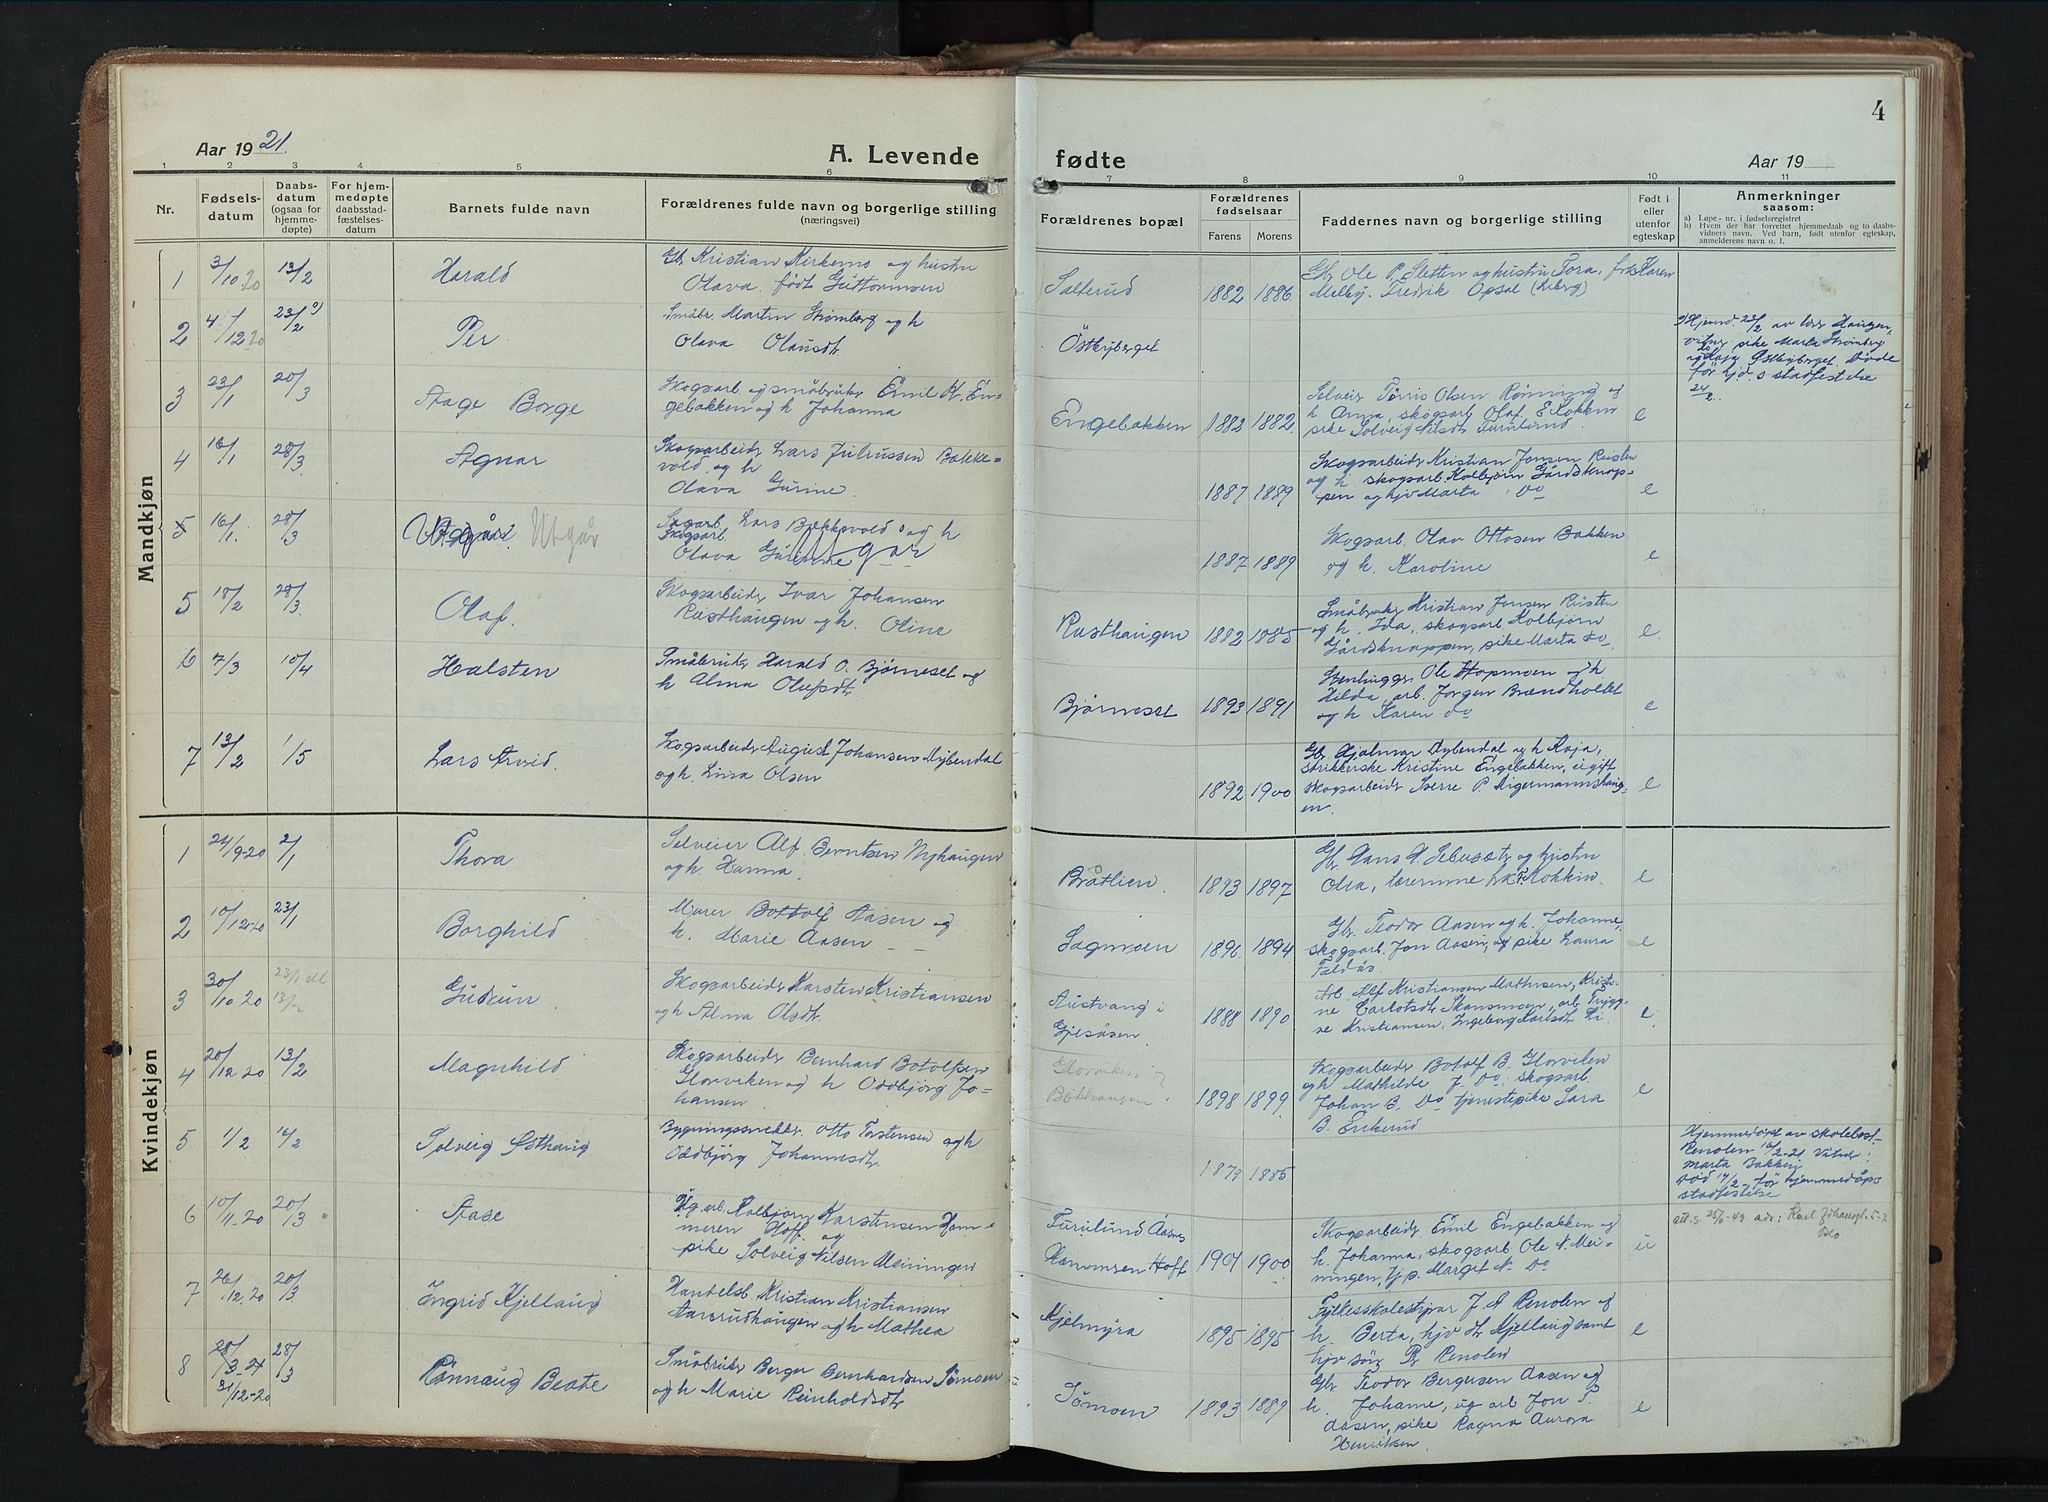 4
Aar 1921.
A. Levende
fødte
Aar 19
1 2 3 4 5 6 7 8 9 10 11
Nr.
Fødsels-
datum
Daabs-
datum
(ogsaa for
hjemme-
døpte)
For hjem-
medøpte
daabsstad-
fæstelses-
datum
Barnets fulde navn
Forældrenes fulde navn og borgerlige stilling
(næringsvei)
Forældrenes bopæl
Forældrenes
fødselsaar
Farens Morens
Faddernes navn og borgerlige stilling
Født i
eller
utenfor
egteskap
Anmerkninger
saasom:
a) Løpe-nr. i fødselsregistret
b) Hvem der har forrettet hjemmedaab og to daabs-
vidners navn. Ved barn, født utenfor egteskap,
anmelderens navn o. l.
Mandkjøn
1 3/10 20 13/2 Harald
Gbr Kristian Kirkemo og hustru
Olava født Guttormsen
Salterud 1882 1886
Gbr Ole P. Sletten og hustru Tora, frk Karen
Melby. Fredrik Opsal
2 4/12 20 23/2 Per
Småbr. Martin Strømberg og h
Olava Olausdtr
Östbyberget
Hjemd. 23/2 av Haugen,
pike Marta Strømberg
Östbyberget. Døde
før hjd.s stadfestelse
24/2.
3 23/1 20/3 Aage Borge
Skogsarb og småbruker Emil K. En-
gebakken og h Johanna
Engebakken 1882 1882
Selveier Törris Olsen Rønning og
h Anna, skogsarb Olaf E Lokken
pike Solveig Nilsdtr Turulund. e
4 16/1 28/3 Agnar
Skogsarbeider Lars Juliussen Bække-
vold og h
Olava Gurine.
1887 1889
Skogsarbeider Kristian Jonsen Risten
og h. skogsarb Kolbjörn Gårdsknap-
pen og hjv Marta Do e
5 16/1. 28/3 Utgår
Skogsarb Lars Bækkevold og h
Olava Gurine
1887 1889
Skogsarb. Olav Ottosen Bakken
og h. Karoline e
5 18/2 28/3 Olaf.
Skogsarbeider Ivar Johansen
Rusthaugen og h. Oline
Rusthaugen 1882 1885
Småbruker Kristian Jonsen Risten
og h. Ida, skogsarb Kolbjörn
Gårdsknappen, pike Marta Do e
6 7/3 10/4 Halsten
Småbruker Harald O. Björneset og
h Alma Olufsdtr
Björneset 1893 1891
Stenhugger Ole Hopmoen og h
Hilda, arb. Jörgen Brændholtet
og h Karen Do e
7 13/2 1/5 Lars Arvid.
Skogsarbeider August Johansen Nybendal
og h. Lina Olsen
1892 1900
Gbr. Hjalmar Nybendal og h Kaja,
strikkerske Kristine Engebakken, ugift
skogsarbeider Sverre P. Aigermannshaug-
en. e
Kvindekjøn
1 24/9-20 2/1 Thora
Selveier Alf Berntsen Nyhaugen
og h. Hanna
Bråtlien. 1893 1897
Gbr Hans A. og hustru
Olea, lærerinne frk Lökken. e
2 10/12-20 23/1 Borghild
Murer Bottolf Aasen og
h. Marie Aasen
Sagmoen 1896 1894
Gbr. Teodor Aasen og h. Johanne,
skogsarb. Jon Aasen, og pike Laura
Faldås e
3 30/10 20 23/1 13/2 Gudrun
Skogsarbeider Karsten Kristiansen
og h Alma Olsdtr
Austvang i
Gjesåsen 1888 1890
Arb. Alf Kristiansen Mathisen, Kristi-
ne Carlotsdtr Skansmoen, arb Trygg-
ve Kristiansen, Ingeborg Karlsdtr Li e
4 20/12 20 13/2 Magnhild
Skogsarbeider Bernhard Botolfsen
Glorviken og h Oddbjörg Jo-
hansen
Glorviken
Bækhaugen 1898 1899
Skogsarbeider Botolf B. Glorviken
og h Mathilde J. Do: skogsarb.
Johan B. Do tjenestepike Sara
B. Enkerud e
5 1/2 16/2 Solveig Østhaug
Bygningssnekker Otto Torstensen og h
Oddbjörg Johannesdtr
1879 1885
Hjemmedöpt av skolebest-
Renolen 16/2-21 Vidner:
Marta Bakken
död 17/2- før hjemmedåps
stadfestelse
6 10/1-20 20/3 Aase
Ug. arb. Kolbjörn Karstensen Ham-
meren Hoff og
pike Solveig Nilsen Meiningen
Turulund Åsnes
Hammeren Hoff 1901 1900
Skogsarbeider Emil Engebakken og
h. Johanna, skogsarb Ole N. Mei-
ningen, tj p. Margit N. Do u
att.s. 25/6-49 adr: Karl Johansgt. 5-7
Oslo
7 26/12 20 20/3 Ingrid Kjellaug
Handelsb. Kristian Kristiansen
Aarsrudhaugen og h Mathea
Kjelmyra 1895 1895
Fylkesskolestyrer J. A Renolen og
h. Berta, hjv Kjellaug samt
Renolen e
8 28/3-21 31/12-20 28/3 Rønnaug Beate
Småbruker Berger Bernhardsen Sömoen
og h Marie Reinholdsdtr
Sömoen 1893 1889
Gbr Teodor Bergersen Aasen og
h. Johanne, ug arb Jon T.
Aasen, pike Ragna Aurora
Henriksen. e